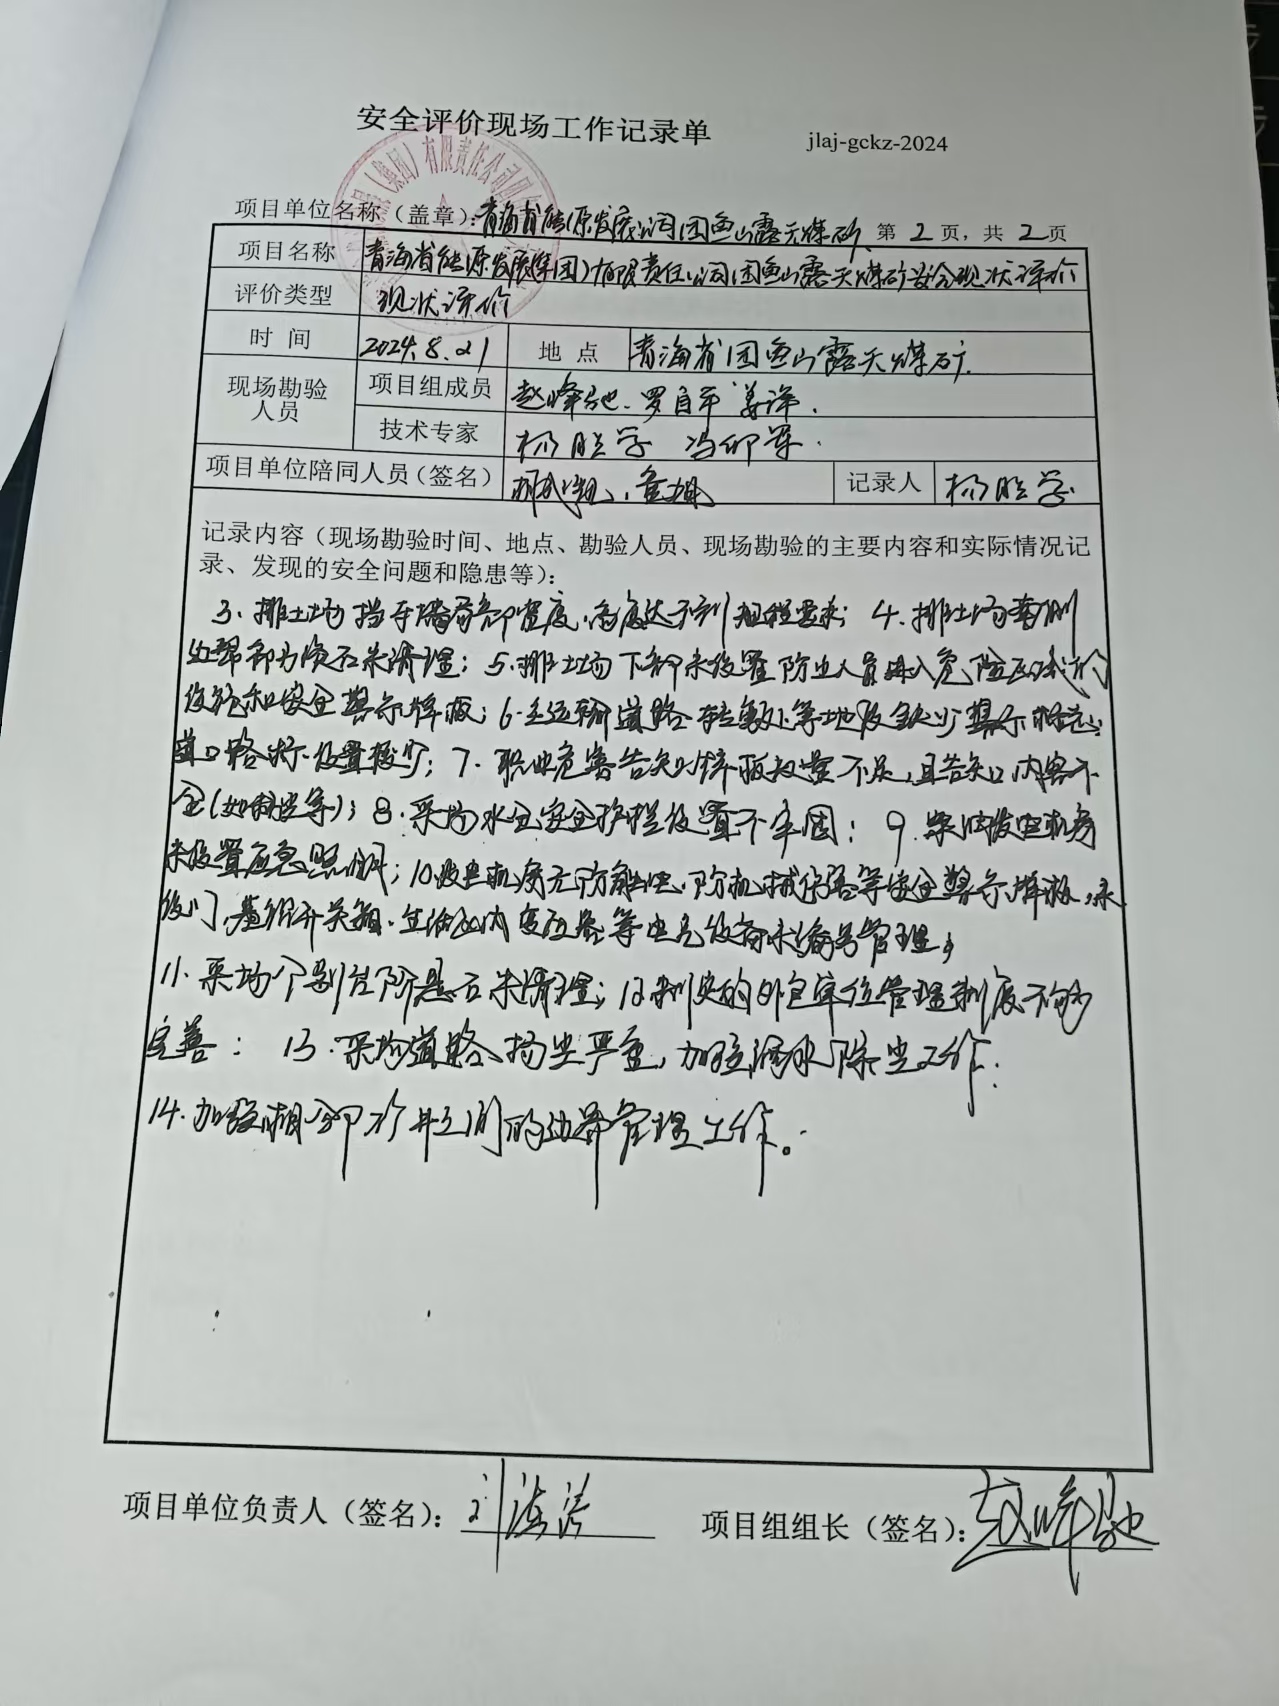 安全评价现场工作记录单 jlaj-gckz-2024
项目单位名称（盖章）：青海省能源发展公司团鱼山露天煤矿 第 2 页，共 2 页
项目名称 青海省能源发展（集团）有限责任公司团鱼山露天煤矿安全现状评价
评价类型 现状评价
时 间 2024.8.21 地 点 青海省团鱼山露天煤矿.
现场勘验人员 项目组成员 赵峰驰、罗自平 姜洋.
技术专家 杨胜学 冯仰军.
项目单位陪同人员（签名） 记录人 杨胜学
记录内容（现场勘验时间、地点、勘验人员、现场勘验的主要内容和实际情况记
录、发现的安全问题和隐患等）：
3、排土场挡车墙局部宽度、高度达不到规程要求；4、排土场南侧
边帮部分浮石未清理；5、排土场下部未设置防止人员进入危险区域的
设施和安全警示牌板；6、主运输道路转载处等地段缺少警示标志；
道口路标设置较少；7、职业危害告知牌板数量不足，且告知内容不
全（如制度等）；8、采场水仓安全护栏设置不牢固；9、柴油发电机房
未设置应急照明；10、发电机房无防触电、防机械伤害等安全警示牌板，未
设门，基组开关箱、生活区内变压器等电气设备未编号管理；
11、采场个别台阶悬石未清理；12、制定的外包单位管理制度不够
完善；13、采场道路扬尘严重，加强洒水除尘工作；
14、加强相邻矿井之间的边界管理工作。
项目单位负责人（签名）： 项目组组长（签名）：赵峰驰